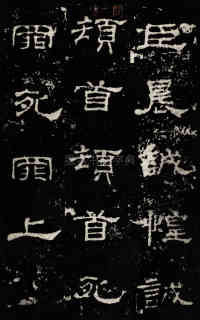 臣晨誠惶誠
頓首頓首死
罪死罪上